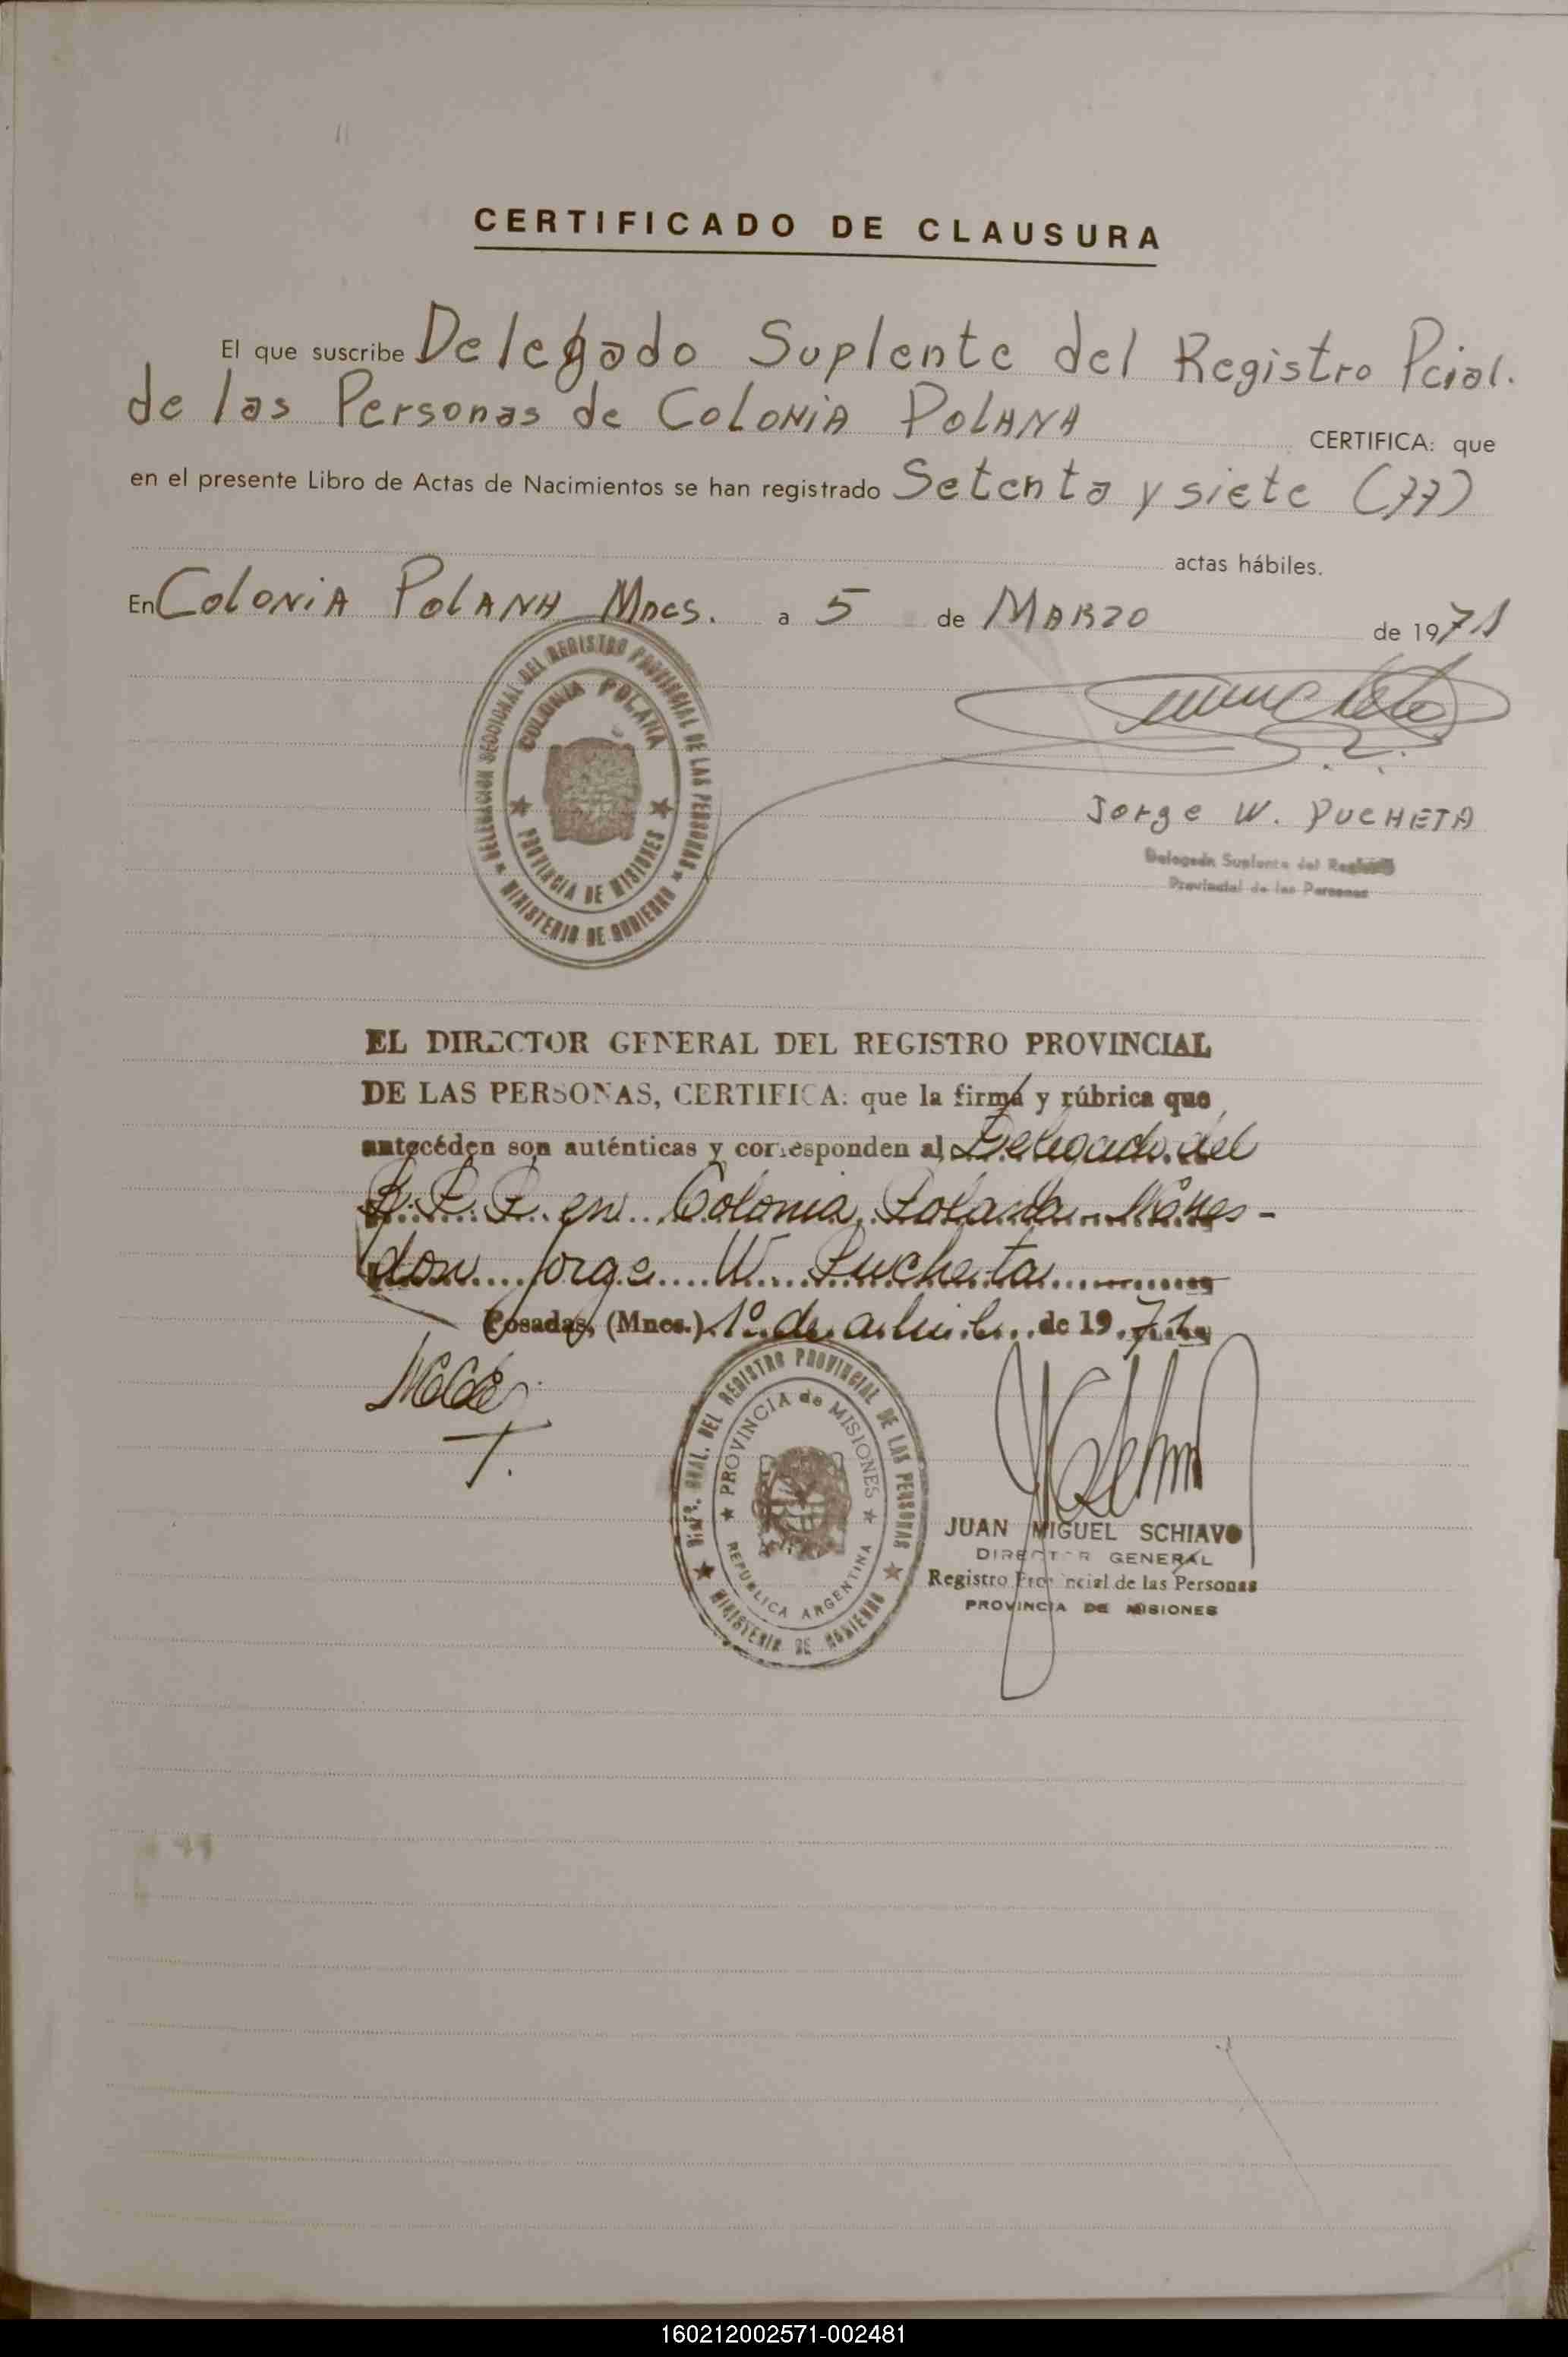 CERTIFICADO DE CLAUSURA
El que suscribe Delegado Suplente del Registro Pcial.
de las Personas de COLONIA POLANA CERTIFICA: que
en el presente Libro de Actas de Nacimientos se han registrado Setenta y siete (77)
actas hábiles.
En COLONIA POLANA Mnes. a 5 de MARZO de 1971
DELEGACION SECCIONAL DEL REGISTRO PROVINCIAL DE LAS PERSONAS
COLONIA POLANA
PROVINCIA DE MISIONES
MINISTERIO DE GOBIERNO
Jorge W. PUCHETA
Delegado Suplente del Registro
Provincial de las Personas
EL DIRECTOR GENERAL DEL REGISTRO PROVINCIAL
DE LAS PERSONAS, CERTIFICA: que la firma y rúbrica que
anteceden son auténticas y corresponden al Delegado del
R. P. P. en Colonia Polana Mnes -
don Jorge W. Pucheta
Posadas, (Mnes.) 1º de abril de 1971
DIREC. GRAL. DEL REGISTRO PROVINCIAL DE LAS PERSONAS
PROVINCIA de MISIONES
REPUBLICA ARGENTINA
MINISTERIO DE GOBIERNO
JUAN MIGUEL SCHIAVO
DIRECTOR GENERAL
Registro Provincial de las Personas
PROVINCIA DE MISIONES
160212002571-002481